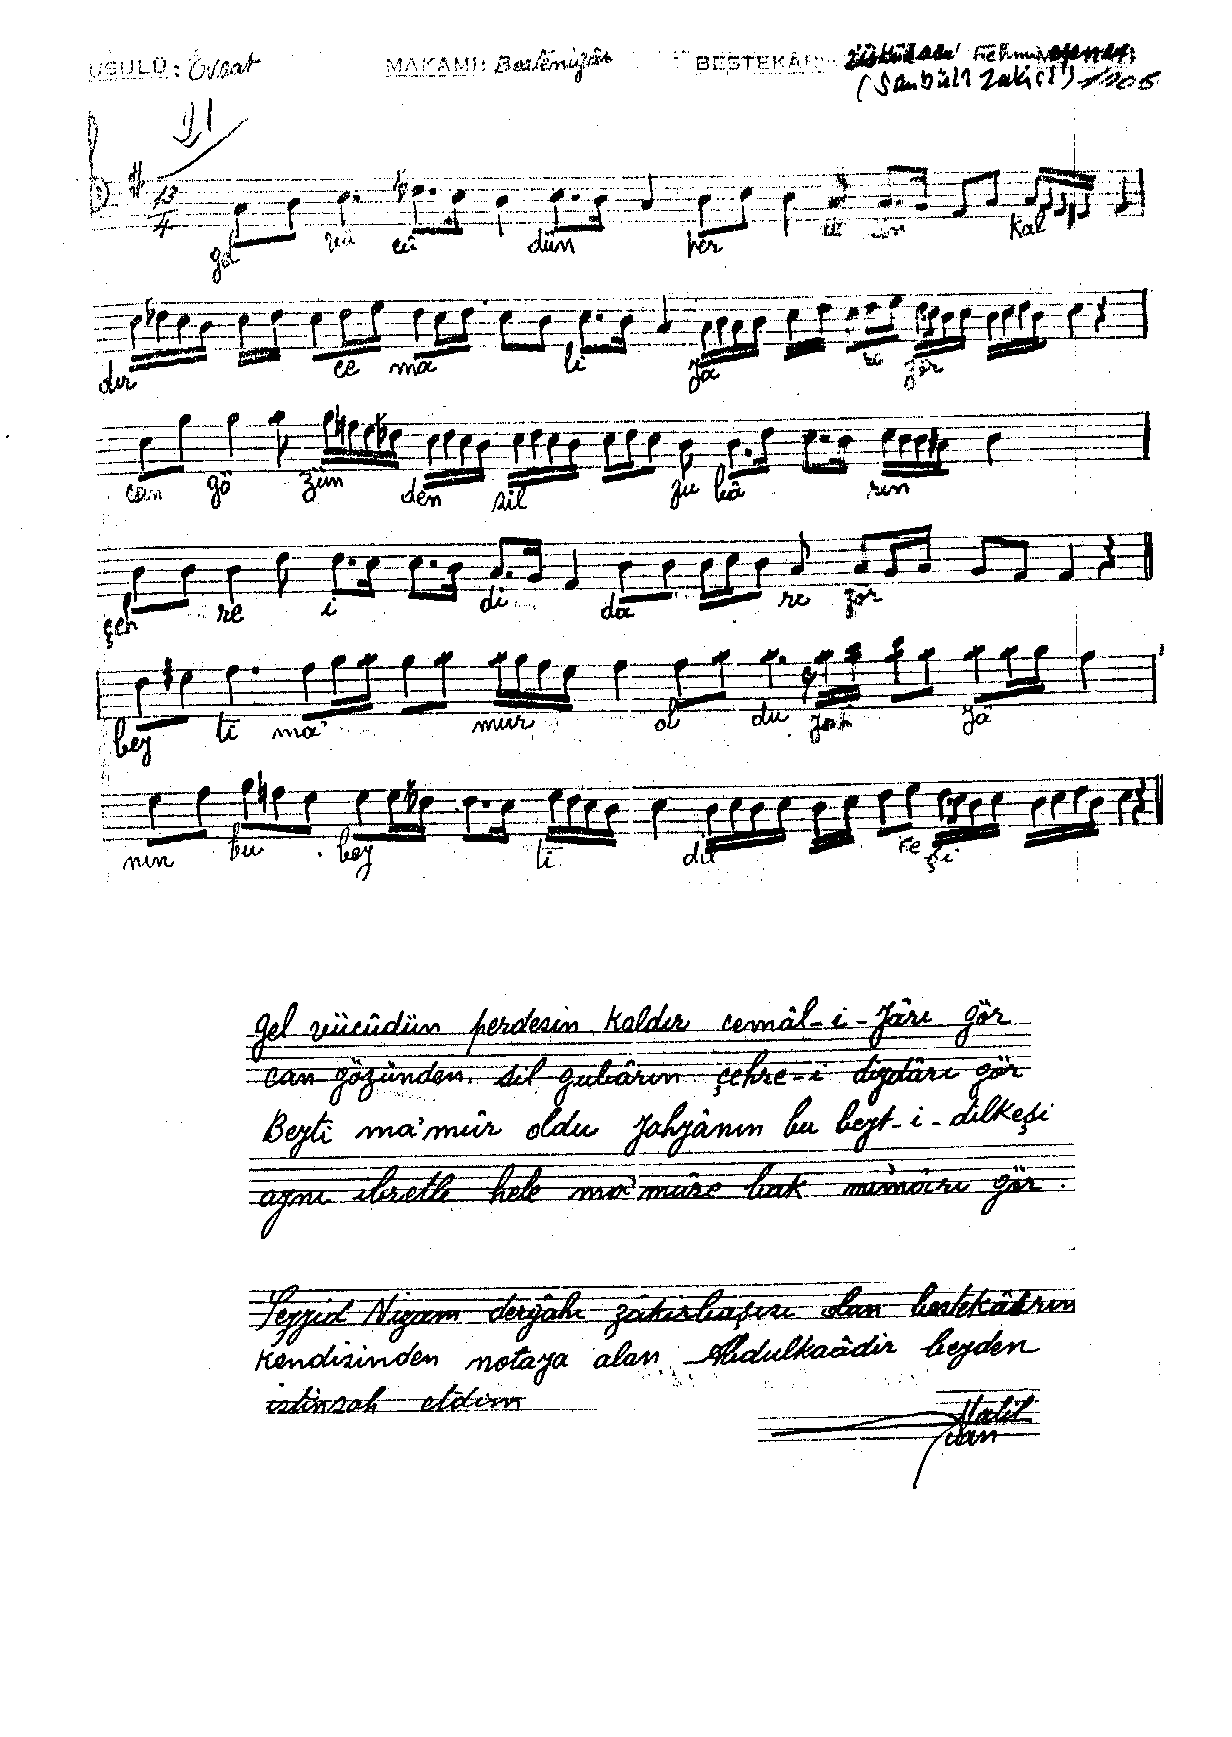 USULÜ: Evsat MAKAMI: Bestenigâr BESTEKÂRI:
1906
21
13
4
gel vü cû dün per de sin kal
dır ce ma li yâ rı gör
can gö zün den sil gu bâ rın
çeh re i di da rı gör
bey ti ma' mur ol du yah yâ
nın bu bey ti dil ke şi
gel vücûdün perdesin kaldır cemâl-i-yârı gör
can gözünden sil gubârın çehre-i diydârı gör
Beyti ma'mûr oldu yahyânın bu beyt-i-dilkeşi
aynı ibretle hele ma'mûre bak mi'mârı gör.
Seyyid Nizam dergâhı zâkirbaşısı olan bestekârın
kendisinden notaya alan Abdulkaâdir beyden
istinsah etdim
Halil
Can